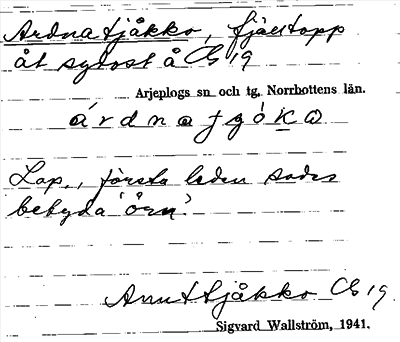 Ardnatjåkko, fjälltopp
åt sydost å Cb 19
Arjeplogs sn och tg, Norrbottens län.
Lap., första leden sades
betyda 'örn'.
Cb 19.
Sigvard Wallström, 1941.